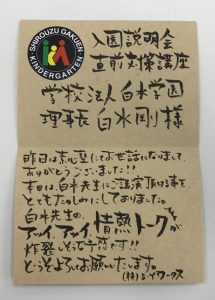 SHIROUZU GAKUEN
KINDERGARTEN
入園説明会
直前対策講座
学校法人白水学園
理事長 白水剛様
昨日は素心塾にお世話になりまして
ありがとうございました!!
本日は、白水先生にご講演頂ける事を
とてもたのしみにしておりました。
白水先生の、
アツイアツイ情熱トークが
炸裂しそうな予感です!!
どうぞよろしくお願いいたします。